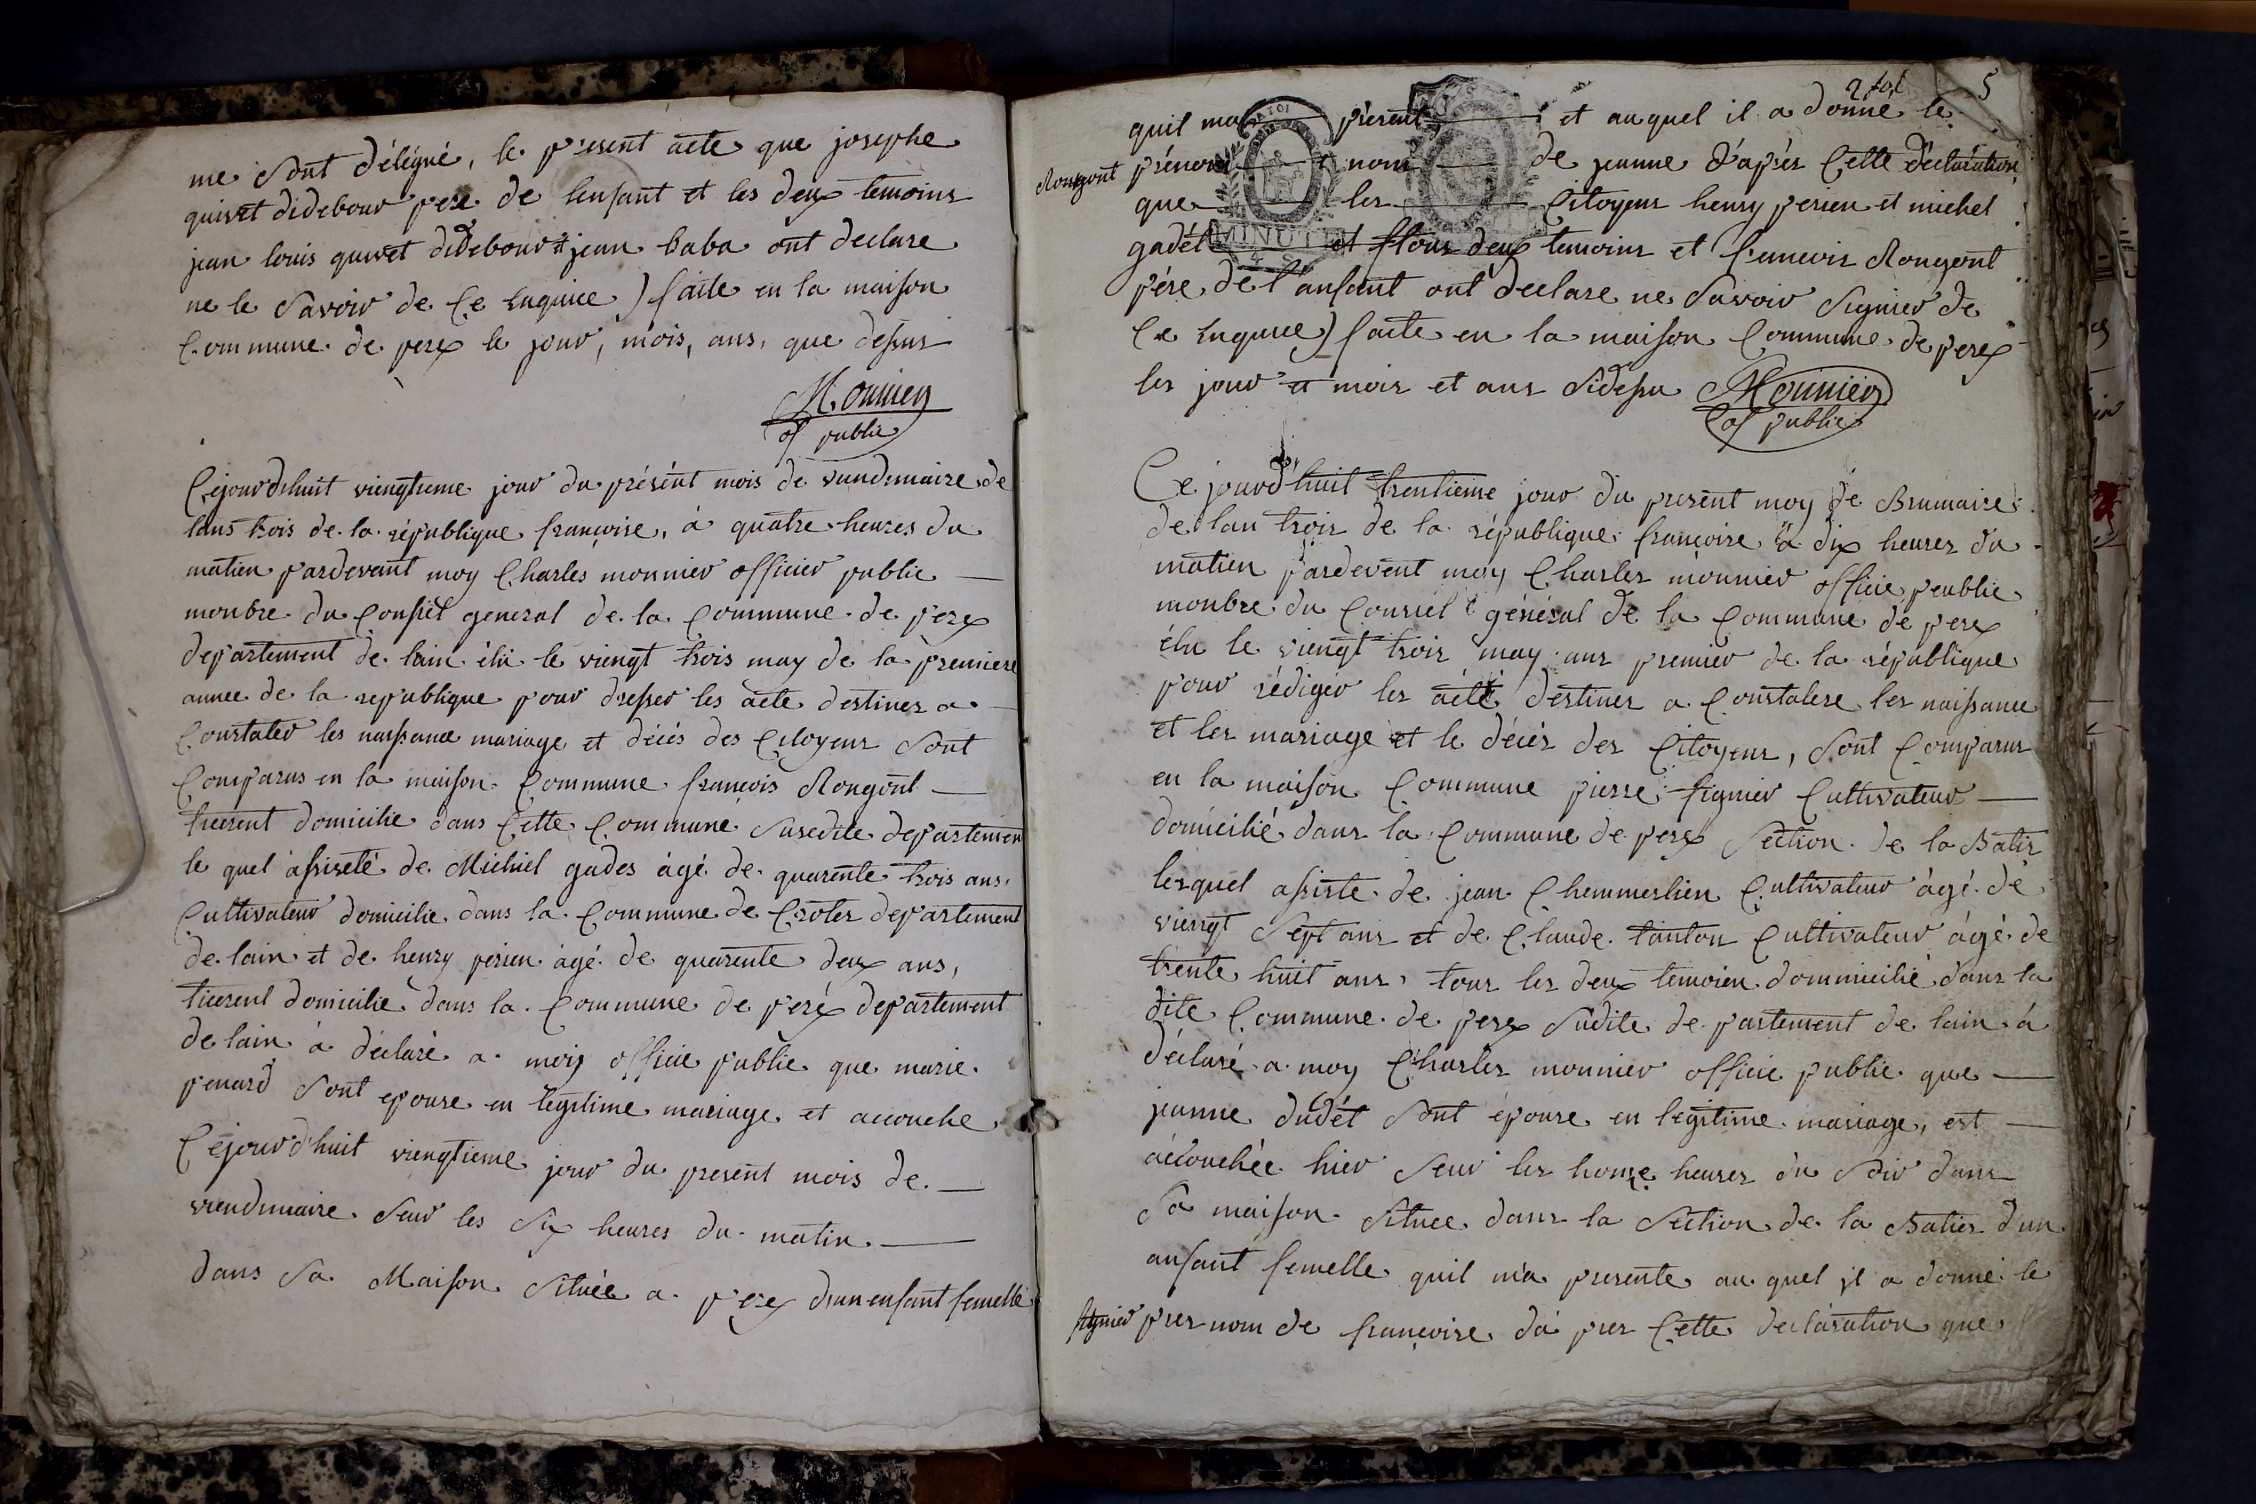 me sont délégué, le present acte que josephe
quivet didebour pere de lenfant et les deux temoins
jean louis quivet didebour et jean baba ont declare
ne le savoir de ce enquice) faite en la maison
Commune de perex le jour, mois, ans, que dessus
Mounier
of public
Cejourdhuit viengtieme jour du présent mois de vendemaire de
lans trois de la république françoise, à quatre heures du
matien pardevant moy Charles mounier officier public
monbre du Consiel general de la Commune de perex
departement de lain élu le viengt trois may de la premiere
annee de la republique pour dresser les acte destines a
Constater les naissance mariage et décés des Citoyens sont
Comparus en la maison Commune françois Rongont
ticerent domicilie dans Cette Commune susedite departemen
le quel assisté de Michiel gades àgé de quarente trois ans,
Cultivateur domicilie dans la Commune de Crotes departement
de lain et de henry perien àgé de quarente deux ans,
ticerent domicilie dans la Commune de perex departement
de lain à déclaré a moy officie public que marie
penard sont epouse en legitime mariage et accouche
Cejourd'huit viengtieme jour du present mois de
viendemaire seur les six heures du matin
dans sa Maison située a perex d'un enfant femelle
2 fol 5
quil ma présenté, et auquel il a donné le
Rongont prénom et nom de jeanne d'aprés Cette déclaration
que les Citoyens henry perien et michel
MINUTE
gadét et stous deux temoins et francois Rongont
pére de l'anfant ont declare ne savoir signier de
Ce enquice) faite en la maison Commune de perex
les jour et mois et ans sidesu Mounier
of public
Ce jourd'huit trentieme jour du present moy de Brumaire
de lan trois de la république françoise à dix heures du
matien pardevent moy Charles mounier officie peublie
monbre du Consiel général de la Commune de perex
élu le viengt trois may ans premier de la république
pour rédigér les acte destines a Constalere les naissance
et les mariage et le décés des Citoyens, sont Comparus
en la maison Commune pierre signier Cultivateur
domicilié dans la Commune de perex section de la Batis
lesquel assiste de jean Chemmerlien Cultivateur àgé de
viengt sept ans et de Claude tanton Cultivateur àgé de
trente huit ans, tous les deux temoien dommicilié dans la
dite Commune de perex sudite de partement de lain à
déclaré a moy Charles mounier officie public que
jeanne dudét sont épouse en légitime mariage, est
accouchée hier seur les honze heures du soir dans
sa maison situee dans la section de la Baties d'un
anfant femelle quil m'a presente au quel il a donné le
signier pres nom de françoise da pres Cette declaration que